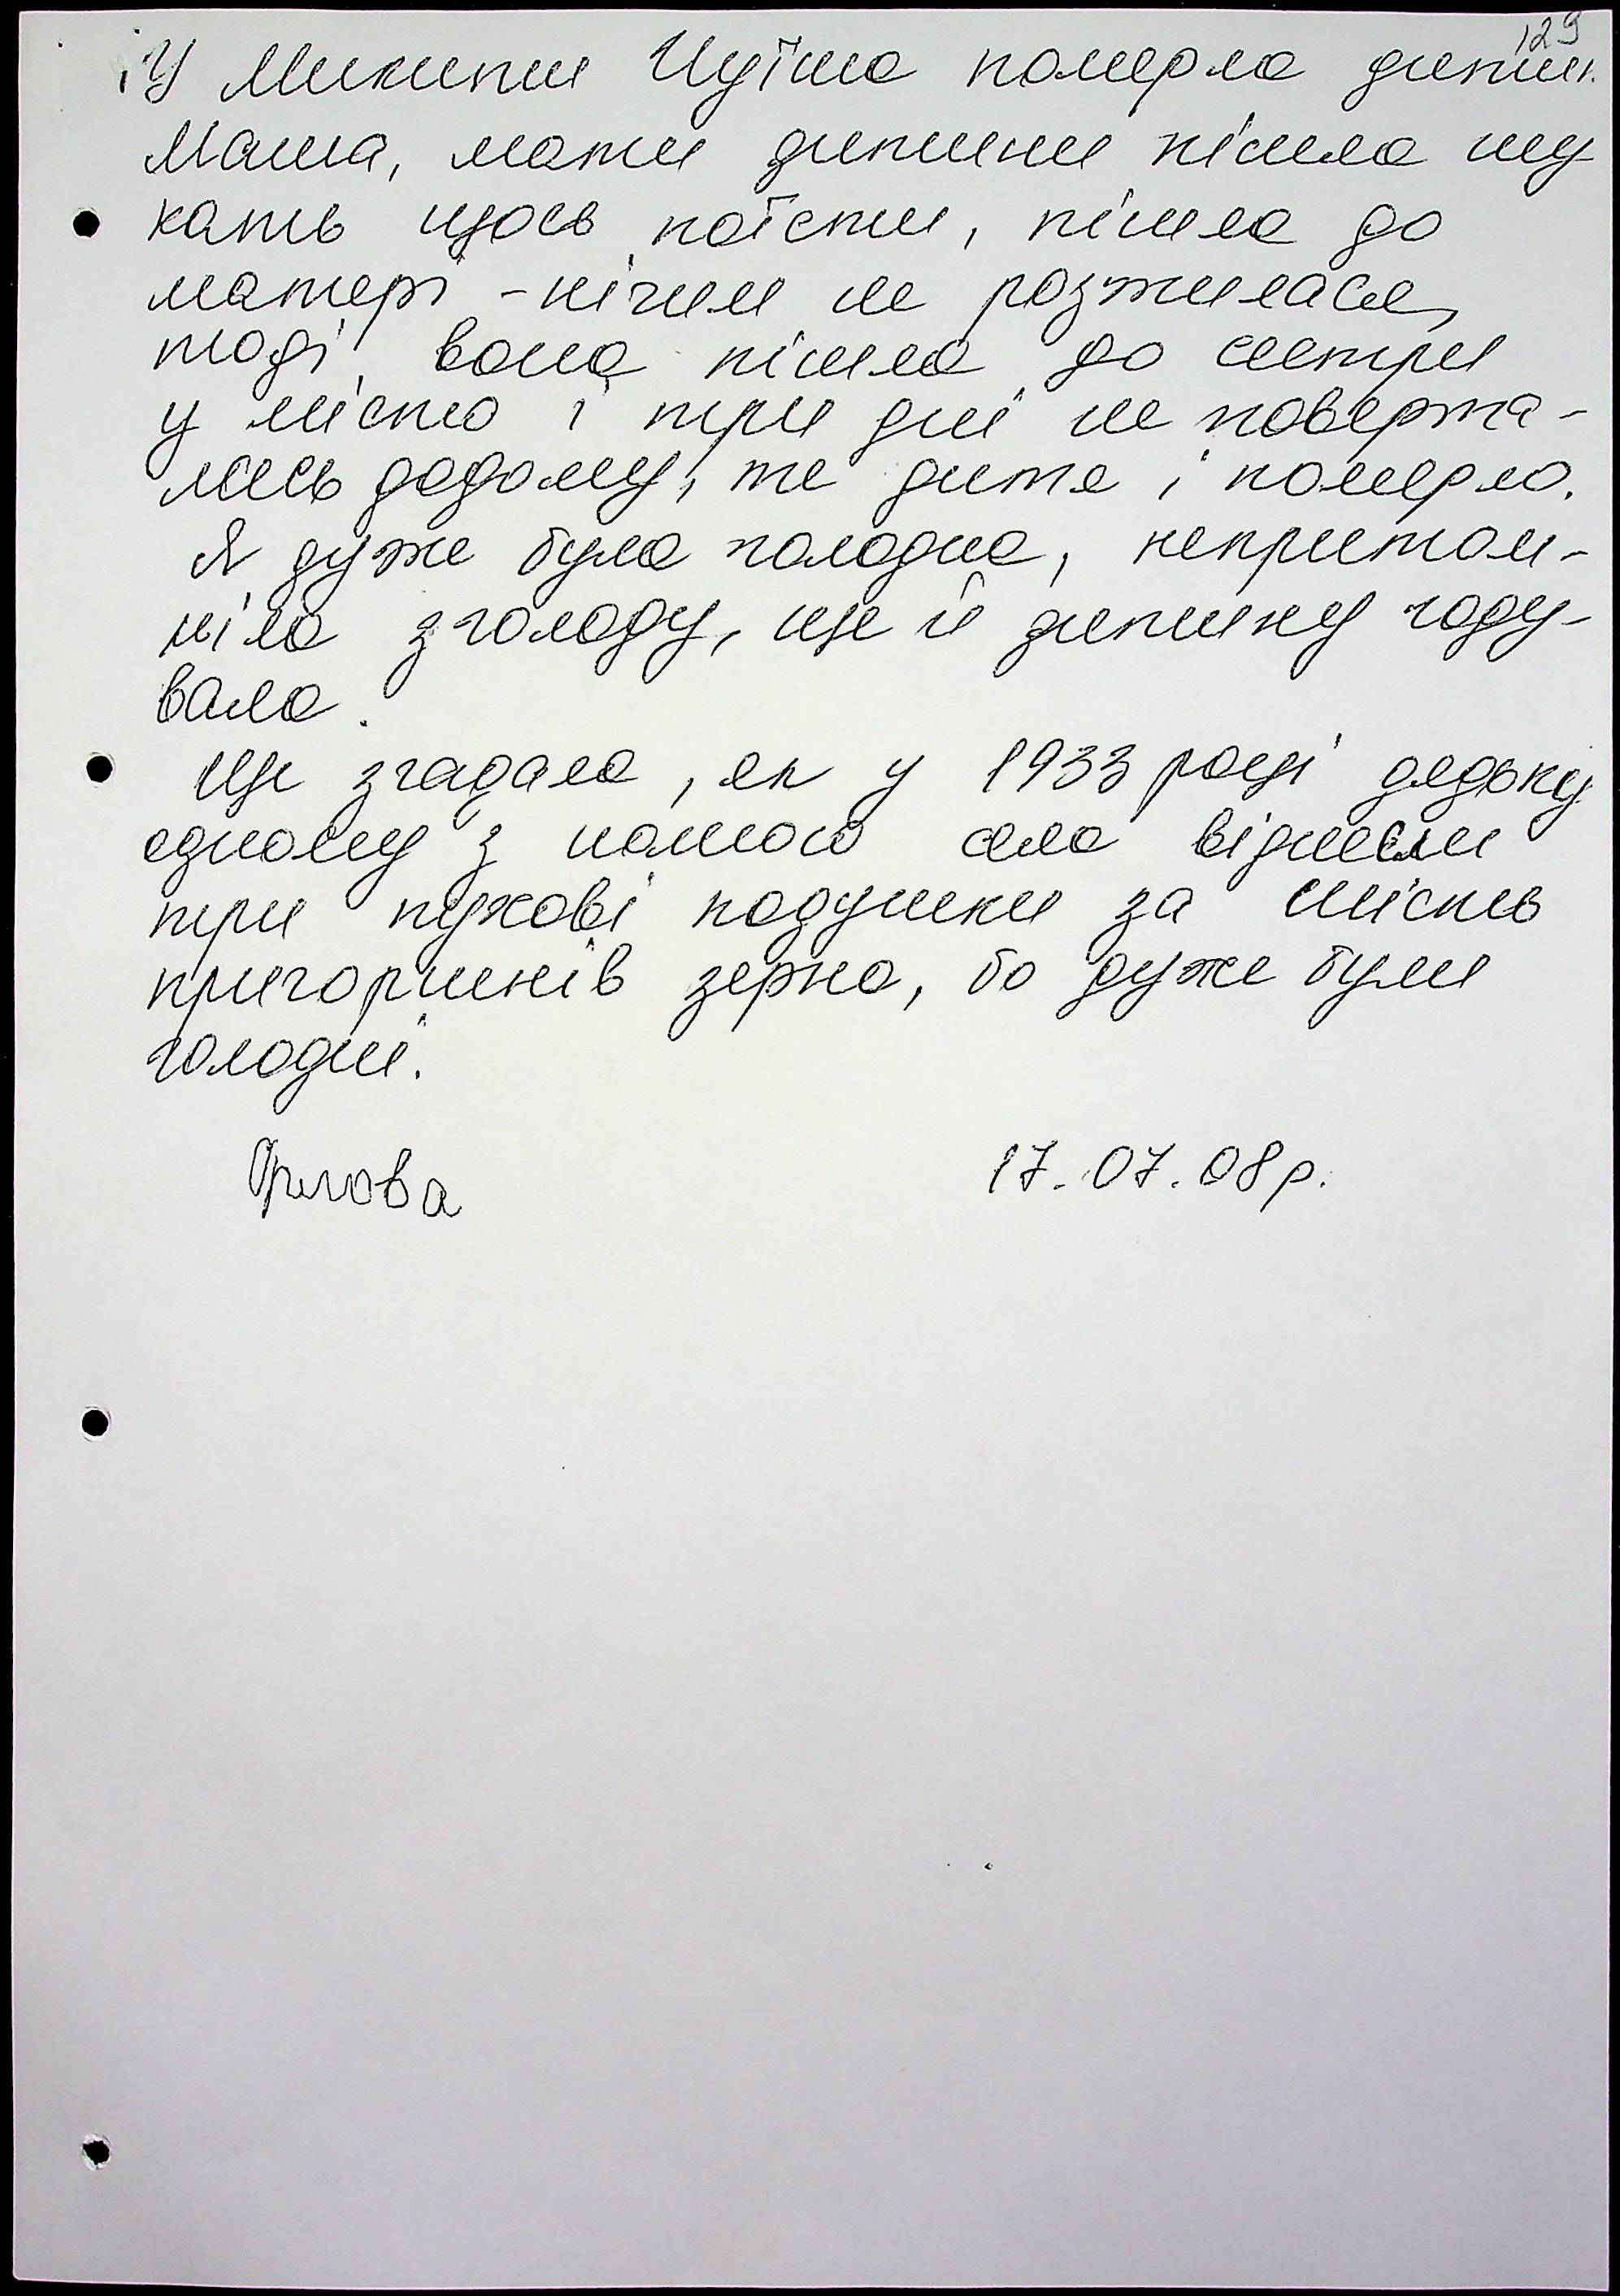 129
У Микити Чуїша померла дитин
Маша, мати дитини пішла шу
кать щось поїсти, пішла до
матері - нічим не розжилася,
тоді вона пішла до сестри
у місто і три дні не поверта-
лась додому, те дитя і померло.
Я дуже була голодна, непритом-
ніла з голоду, ще й дитину году-
вала.
Ще згадала, як у 1933 році дядьку
одному з нашого села віднесли
три пухові подушки за шість
пригоршнів зерна, бо дуже були
голодні.
Орлова 17.07.08 р.